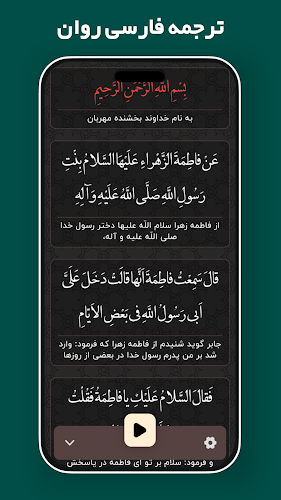 ترجمه فارسی روان
بِسْمِ اللَّهِ الرَّحْمَنِ الرَّحِيمِ
به نام خداوند بخشنده مهربان
عَنْ فَاطِمَةَ الزَّهْرَاءِ عَلَيْهَا السَّلَامُ بِنْتِ
رَسُولِ اللَّهِ صَلَّى اللَّهُ عَلَيْهِ وَآلِهِ
از فاطمه زهرا سلام اللّه علیها دختر رسول خدا
صلی اللّه علیه و آله،
قَالَ سَمِعْتُ فَاطِمَةَ أَنَّهَا قَالَتْ دَخَلَ عَلَيَّ
أَبِي رَسُولُ اللَّهِ فِي بَعْضِ الْأَيَّامِ
جابر گوید شنیدم از فاطمه زهرا که فرمود: وارد
شد بر من پدرم رسول خدا در بعضی از روزها
فَقَالَ السَّلَامُ عَلَيْكِ يَا فَاطِمَةُ فَقُلْتُ
و فرمود: سلام بر تو ای فاطمه در پاسخش